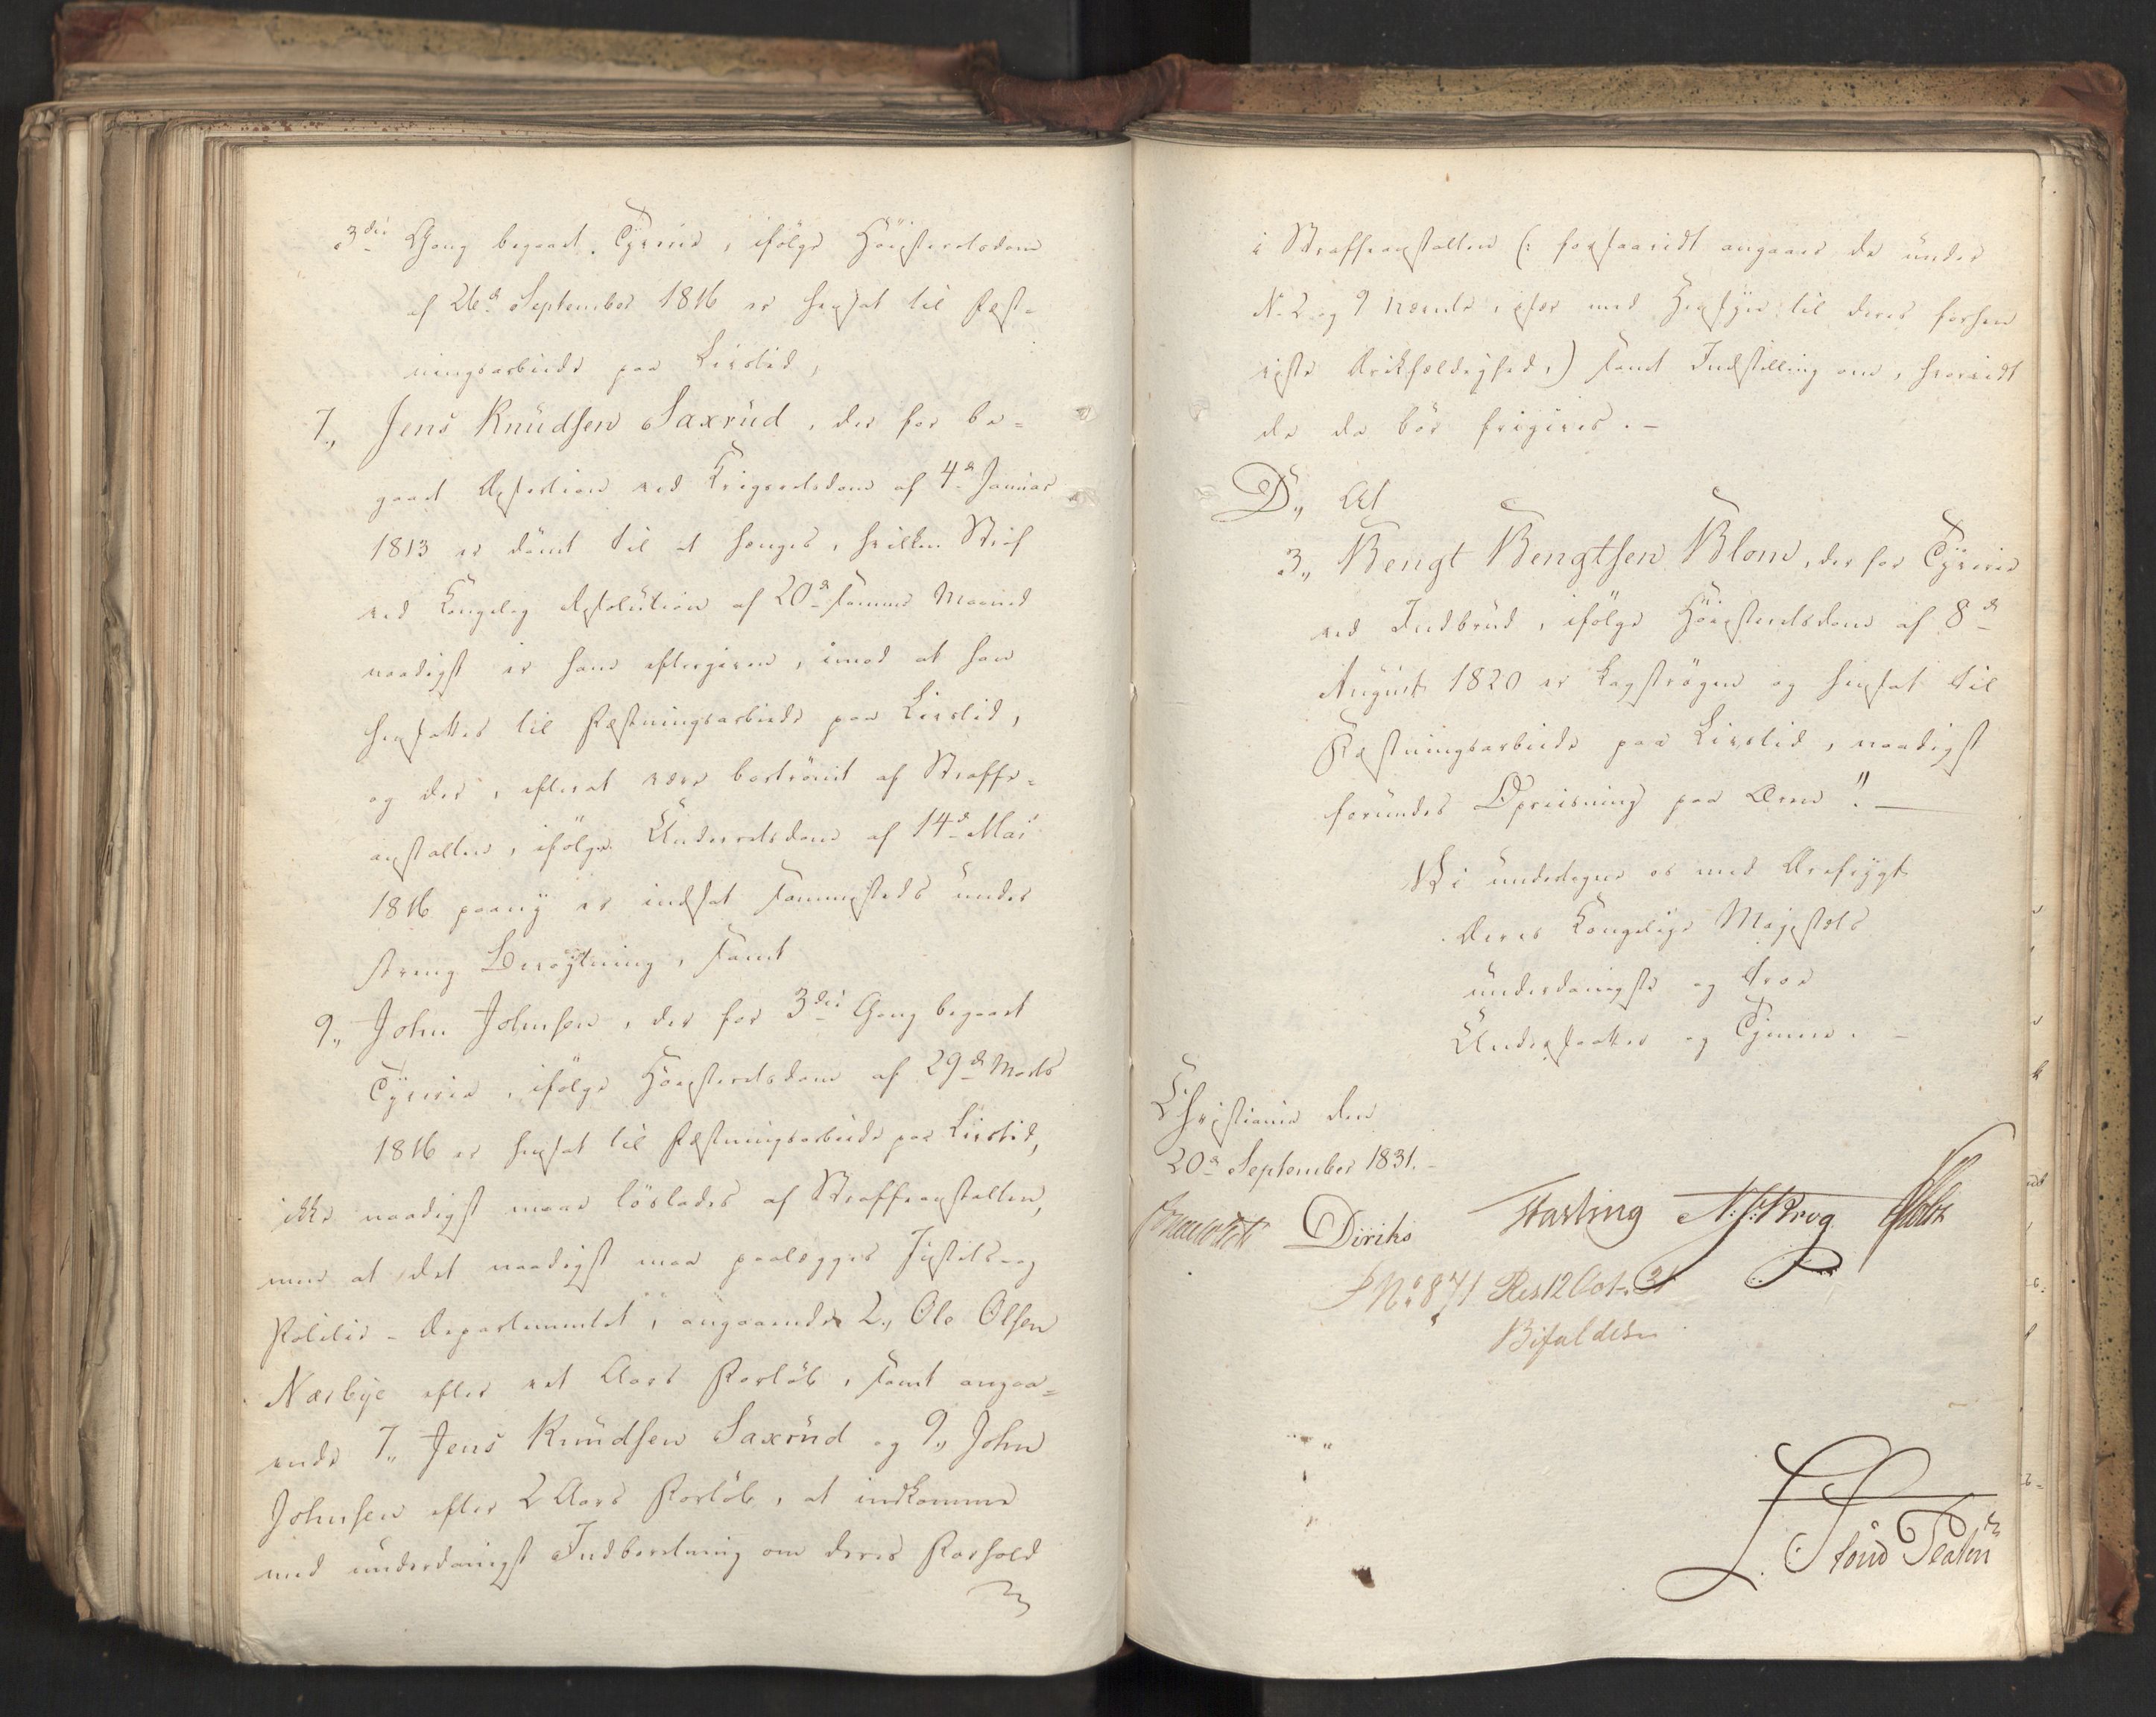 3die Gang begaaet Tyverie, ifölge Höiesteretsdom
af 26de September 1816 er hensat til Fæst-
ningsarbeide paa Livstid,
7., Jens Knudsen Saxrud, der for be-
gaaet Desertion ved Krigsretsdom af 4de Januar
1813 er dömt til at hænges, hvilken Straf
ved Kongelig Resolution af 20de samme Maaned
naadigst er ham eftergiven, imod at han
hensættes til Fæstningsarbeide paa Livstid,
og der, efterat være bortrömt af Straffe-
anstalten, ifölge Underretsdom af 14de Mai
1816 paany er indsat sammesteds under
streng Bevogtning, samt
9., John Johnsen, der for 3die Gang begaaet
Tyverie, ifölge Höiesteretsdom af 29de Marts
1816 er hensat til Fæstningsarbeide paa Livstid,
ikke naadigst maae löslades af Straffeanstalten,
men at det naadigst maa paalægges Justits- og
Politie-Departementet, angaaende 2., Ole Olsen
Nærbye efter et Aars Forlöb, samt angaa-
ende 7., Jens Knudsen Saxrud og 9., John
Johnsen efter 2 Aars Forlöb, at indkomme
med underdanigst Indberetning om deres Forhold
i Straffeanstalten (: forsaavidt angaaer de under
No 2 og 9 nævnte, især med Hensyn til deres forhen
viiste Drikfældighed,) samt Indstilling om, hvorvidt
de da bör frigives. -
D., At
3., Bengt Bengtsen Blom, der for Tyverie
ved Indbrud, ifölge Höiesteretsdom af 8de
August 1820 er kagströgen og hensat til
Fæstningsarbeide paa Livstid, naadigst
forundes Opreisning paa Æren". -
Vi undertegne os med Ærefrygt
Deres Kongelige Majestæts
underdanigste og troe
Undersaatter og Tjenere. -
Christiania den
20de September 1831. -
Diriks Fasting N: J: Krog Holst
P No 871 Res 12 Oct. 31
Bifaldes